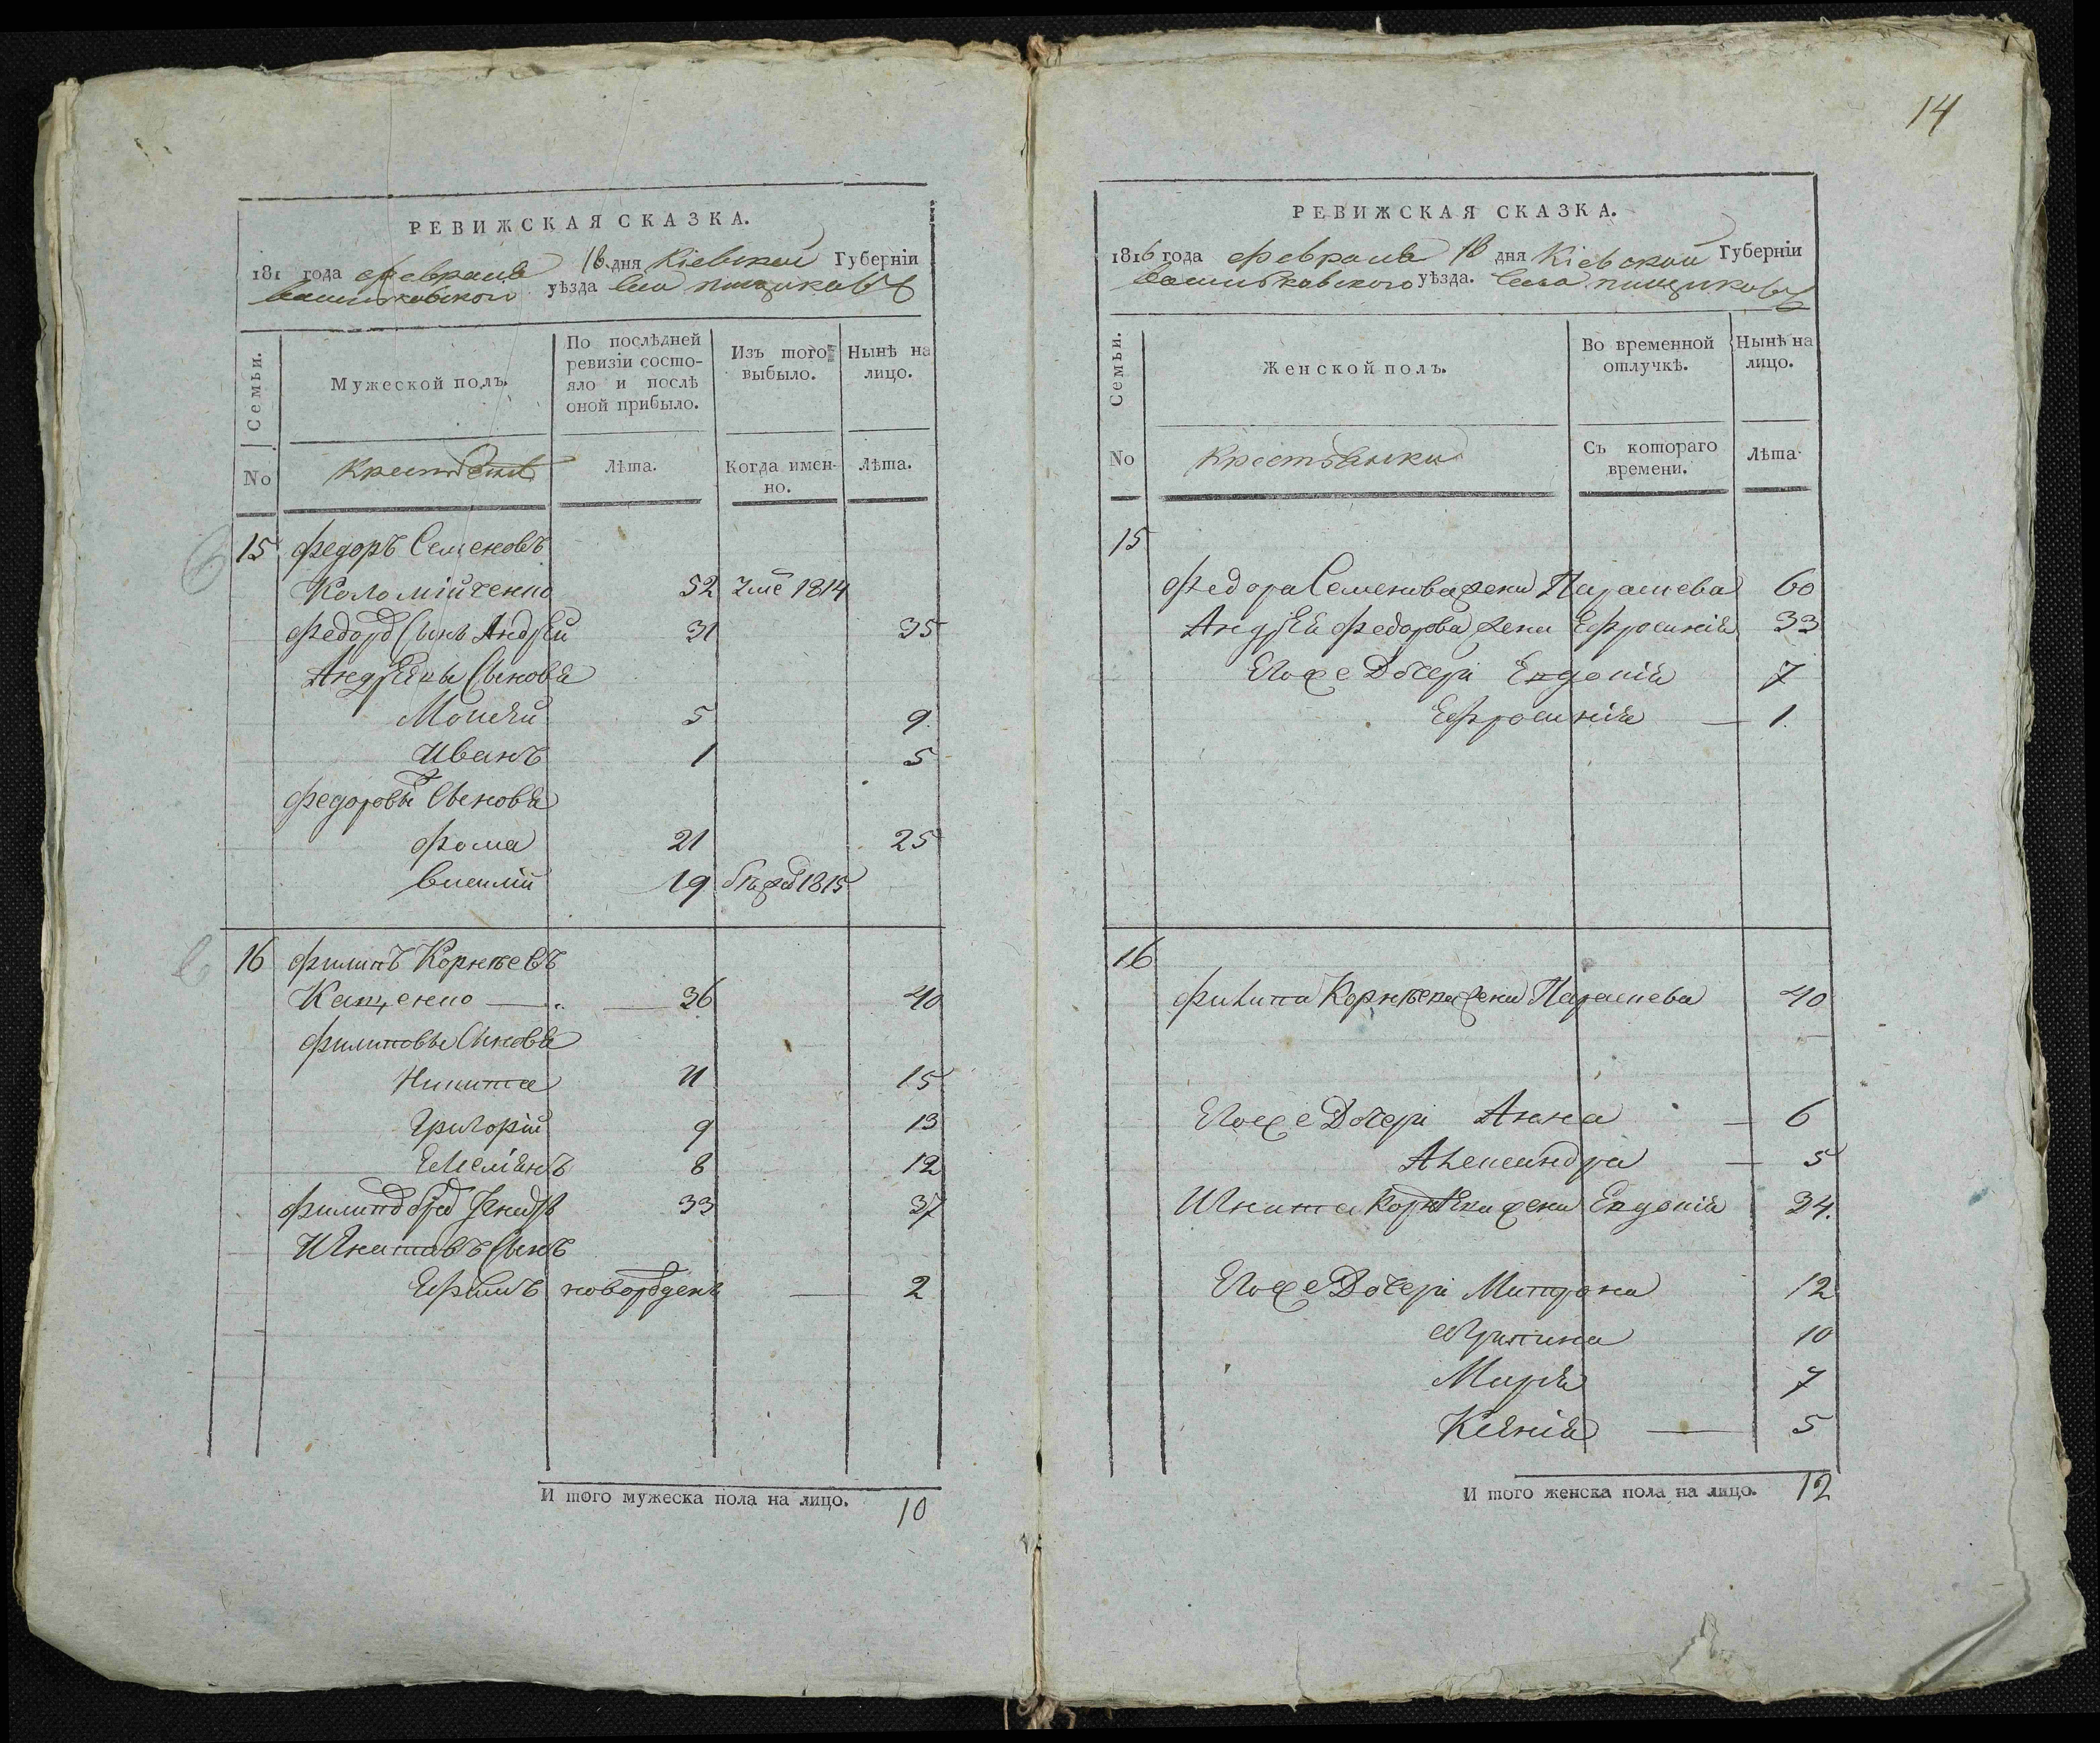 14
РЕВИЖСКАЯ СКАЗКА.
181 года февраля 18 дня Кіевской Губерніи
васильковского уѣзда села пищиковъ
Семьи.
Мужеской полъ.
По послѣдней ревизіи состояло и послѣ оной прибыло.
Изъ того выбыло.
Нынѣ на лицо.
No
Крестьяне
Лѣта.
Когда именно.
Лѣта.
15 федоръ Семеновъ
Коломійченко 52 1814
федора Сынъ Андрѣй 31 35
Андрѣевы Сыновя
Мойсѣй 5 9.
Иванъ 1 5
федоровы Сыновя
фома 21 25
василій 19 1815
16 филипъ Корнѣевъ
Кащенко 36 40
филиповы Сыновя
Никита 11 15
Григорій 9 13
Емеліянъ 8 12
филипа брат 33 37
Игнатовъ Сынъ
Ефимъ новорожденъ 2
И того мужеска пола на лицо. 10
РЕВИЖСКАЯ СКАЗКА.
1816 года февраля 18 дня Кіевской Губерніи
васильковского уѣзда. Села пищиковъ
Семьи.
Женской полъ.
Во временной отлучкѣ.
Нынѣ на лицо.
No
Крестьянки
Съ котораго времени.
Лѣта.
15
федора Семенова жена Параскева 60
Андрѣя федорова жена Ефросинія 33
Егоже Дочери Евдокія 7
Ефросинія 1.
16
филипа Корнѣева жена Параскева 40
Егоже Дочери Анна 6
Александра 5
Игната Корнѣева жена Евдокія 34.
Егоже Дочери 12
10
Марія 7
Ксенія 5
И того женска пола на лицо. 12